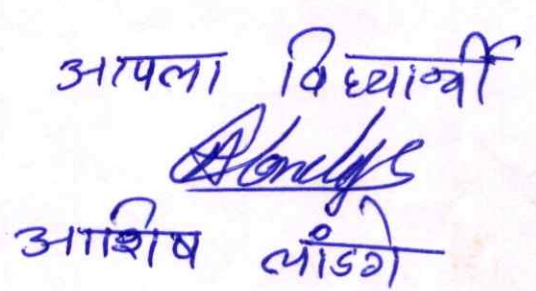 आपला विध्यार्थी
आशिष लांडगे